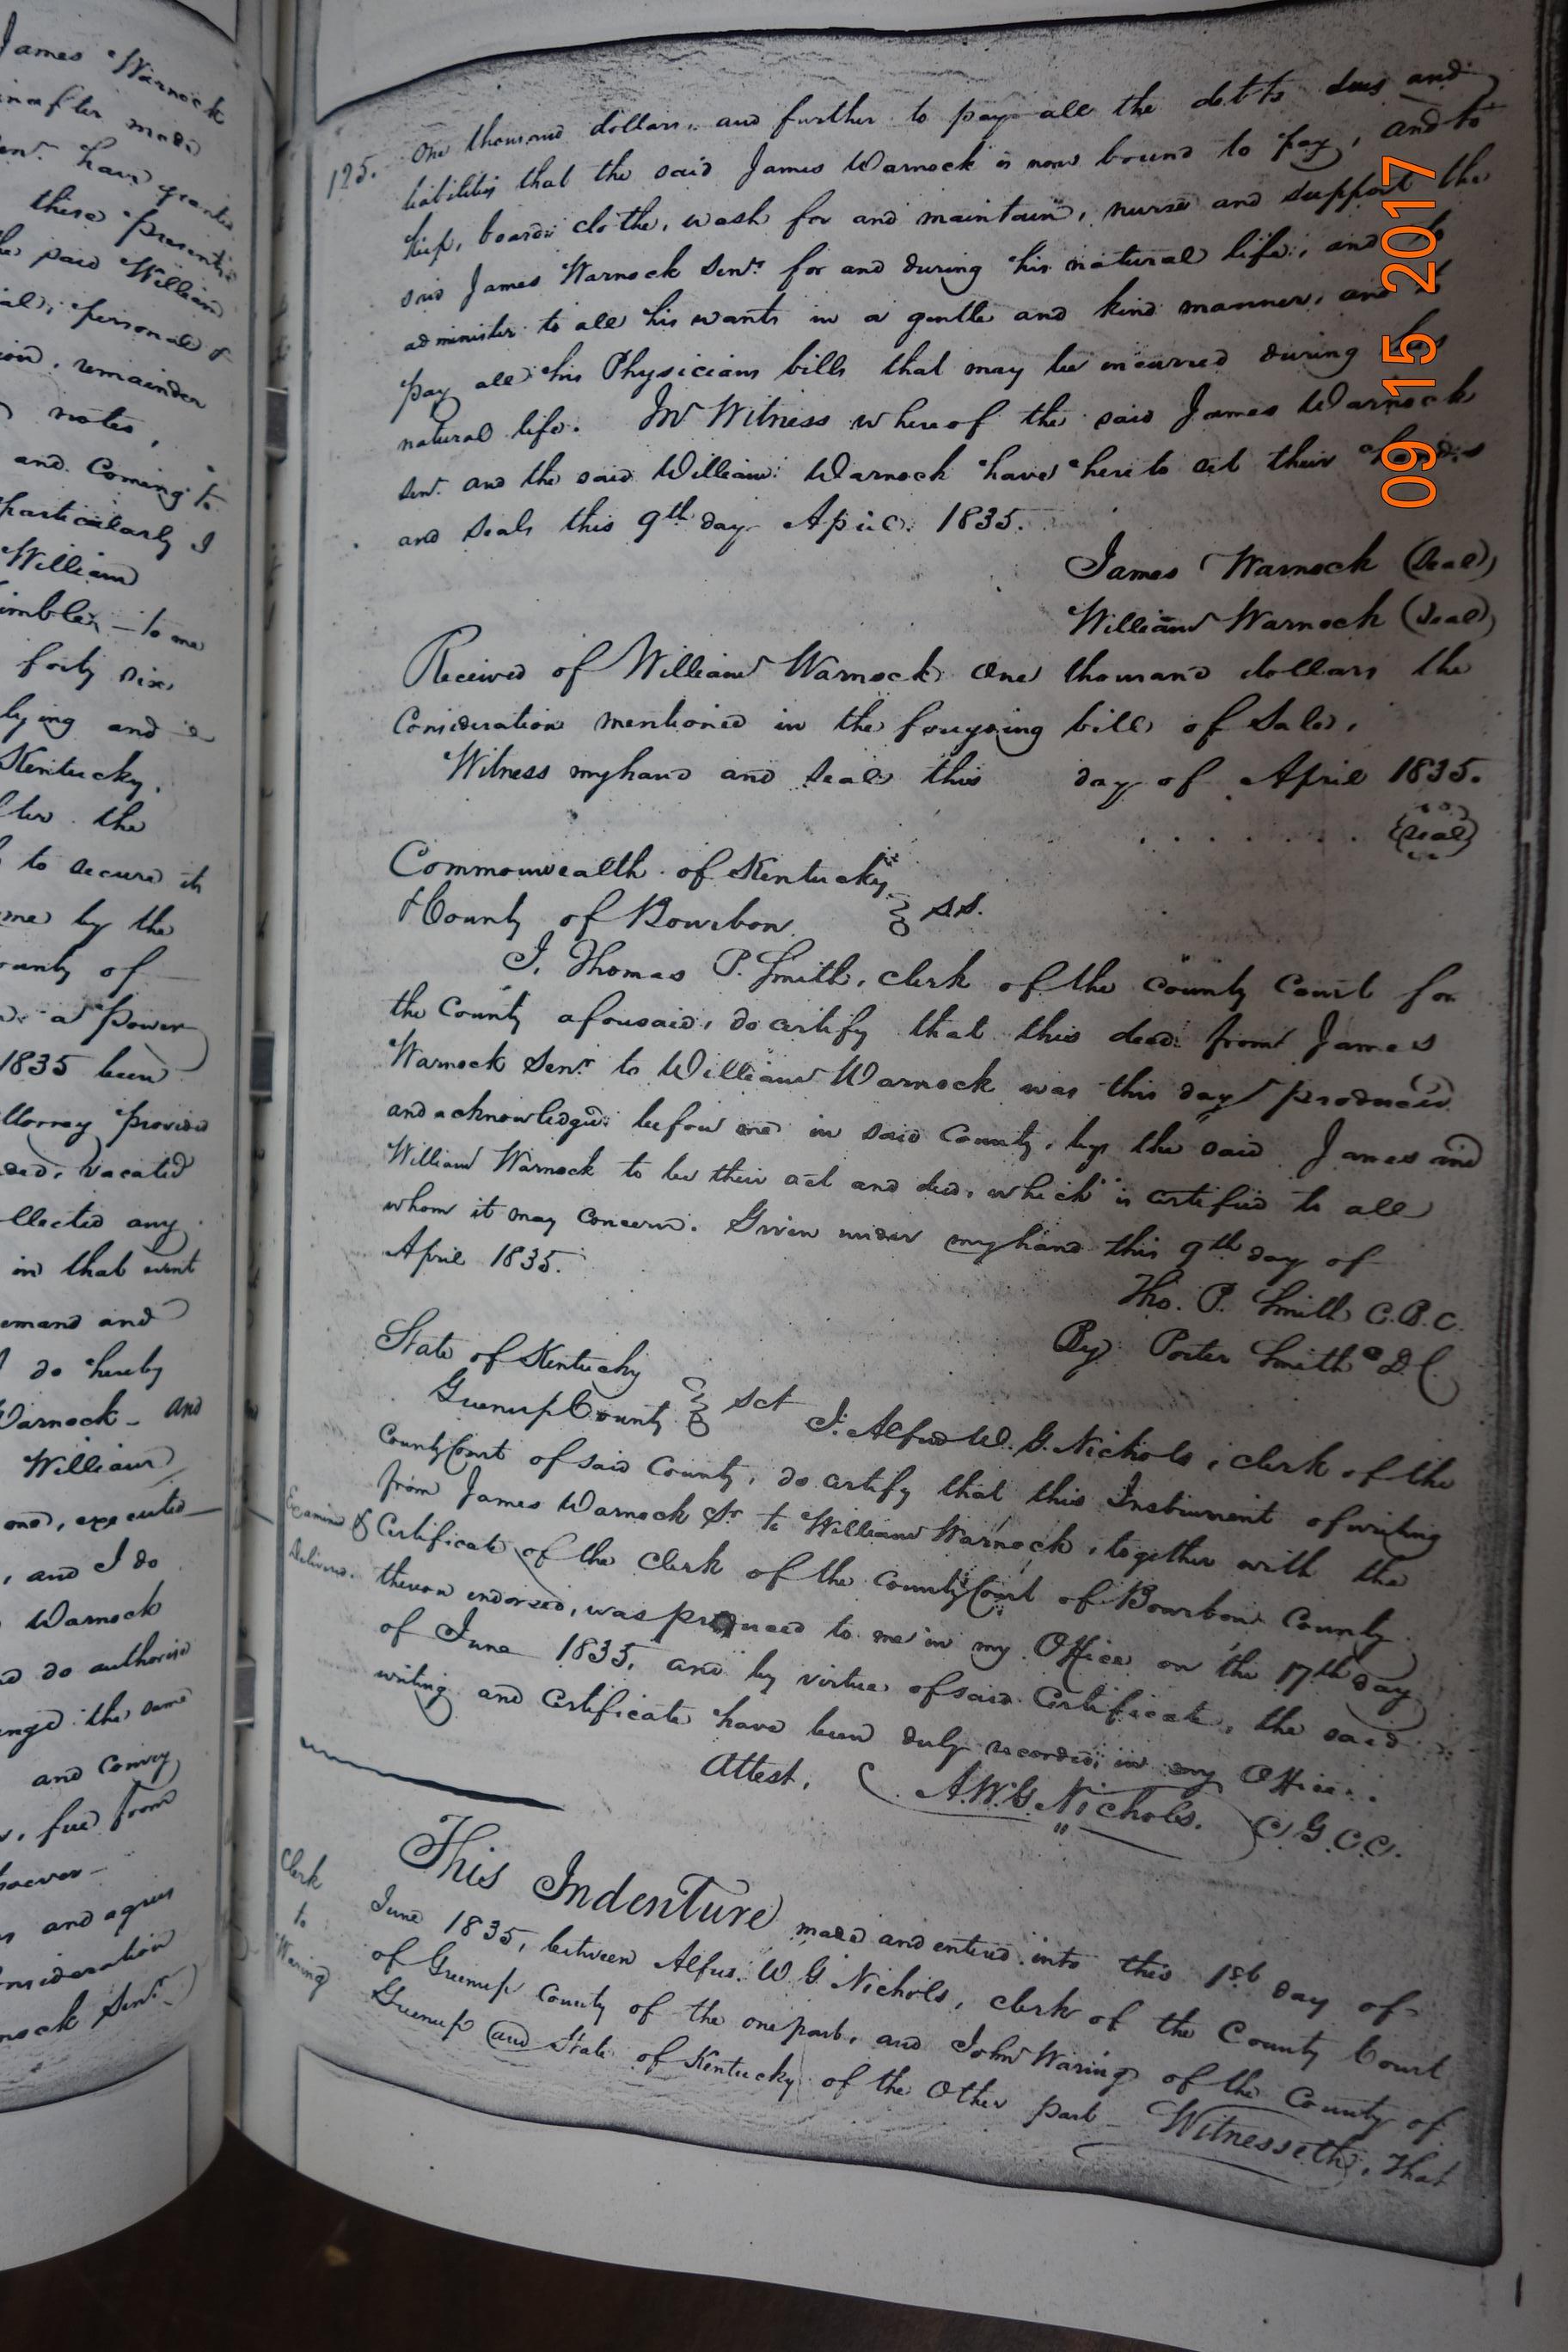 James Warnock
made
Senr. have granted
these presents
the said William
personal &
remainder
notes,
and Coming to
particularly I
William
to me
forty six
lying and
Kentucky,
the
to secure it
me by the
County of
a Power
1835 been
attorney provided
vacated
collected any
in that event
demand and
I do hereby
Warnock - and
William
one, executed
, and I do
Warnock
and do authorise
the same
and convey
, free from
and agrees
Consideration
Warnock Senr.
125.
One thousand dollars, and further to pay all the debts dues and
liabilities that the said James Warnock is now bound to pay, and to
keep, board, clothe, wash for and maintain, nurse and support the
said James Warnock Senr. for and during his natural life, and to
administer to all his wants in a gentle and kind manner, and to
pay all his Physicians bills that may be incurred during his
natural life. In Witness whereof the said James Warnock
Senr. and the said William Warnock have hereto set their hands
and seals this 9th day April 1835.
James Warnock (Seal)
William Warnock (Seal)
Received of William Warnock One thousand dollars the
Consideration mentioned in the foregoing bill of Sale.
Witness my hand and seal this day of April 1835.
. . . . . . . (Seal)
Commonwealth of Kentucky
& County of Bourbon } SS.
I, Thomas P. Smith, clerk of the County Court for
the County aforesaid, do certify that this deed from James
Warnock Senr. to William Warnock was this day produced
and acknowledged before me in said County, by the said James and
William Warnock to be their act and deed, which is certified to all
whom it may concern. Given under my hand this 9th day of
April 1835.
Tho. P. Smith C.B.C.
By Porter Smith D.C.
State of Kentucky
Greenup County } Sct
I, Alfred W. G. Nichols, clerk of the
County Court of said County, do certify that this Instrument of writing
from James Warnock Sr. to William Warnock, together with the
Examined &
Delivered.
Certificate of the Clerk of the County Court of Bourbon County
thereon endorsed, was produced to me in my Office on the 17th day
of June 1835, and by virtue of said Certificate, the said
writing and Certificate have been duly recorded in my Office.
Attest, A.W.G. Nichols. C.G.C.C.
Clerk
to
Waring
This Indenture made and entered into this 1st day of
June 1835, between Alfred W. G. Nichols, clerk of the County Court
of Greenup County of the one part, and John Waring of the County of
Greenup and State of Kentucky of the Other part - Witnesseth, That
09 15 2017